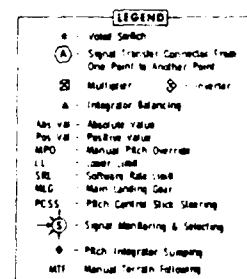 LEGEND
- Voted Switch
A - Signal Transfer Connector From
One Point to Another Point
Multiplier - Inverter
- Integrator Balancing
Abs Val - Absolute Value
Pos Val - Positive Value
MPO - Manual Pitch Override
LL - Lower Limit
SRL - Software Rate Limit
MLG - Main Landing Gear
PCSS - Pitch Control Stick Steering
S - Signal Monitoring & Selecting
- Pitch Integrator Sumping
MTF Manual Terrain Following